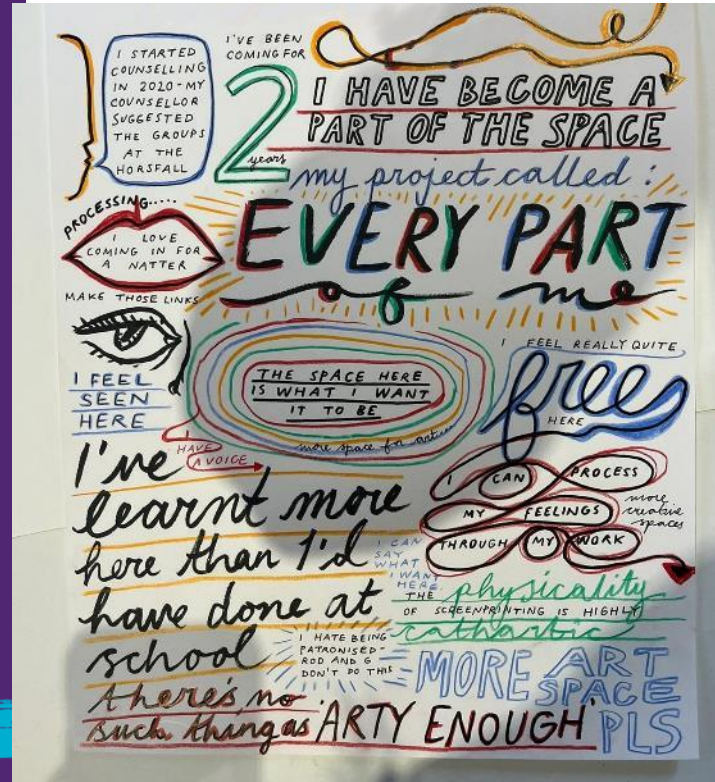 I STARTED
COUNSELLING
IN 2020-MY
COUNSELLOR
SUGGESTED
THE GROUPS
AT THE
HORSFALL
I'VE BEEN
COMING FOR
2
years
I HAVE BECOME A
PART OF THE SPACE
my project called:
EVERY PART
of me
PROCESSING.....
I LOVE
COMING IN FOR
A NATTER
MAKE THOSE LINKS
I FEEL
SEEN
HERE
THE SPACE HERE
IS WHAT I WANT
IT TO BE
more space for artists
I FEEL REALLY QUITE
free
HERE
I
HAVE
A VOICE
I've
learnt more
here than I'd
have done at
school
I CAN PROCESS
MY FEELINGS
THROUGH MY WORK
more
creative
spaces
I CAN
SAY
WHAT
I WANT
HERE.
THE physicality
OF SCREENPRINTING IS HIGHLY
cathartic
I HATE BEING
PATRONISED-
ROD AND G
DON'T DO THIS
MORE ART
SPACE
PLS
there's no
such thing as 'ARTY ENOUGH'